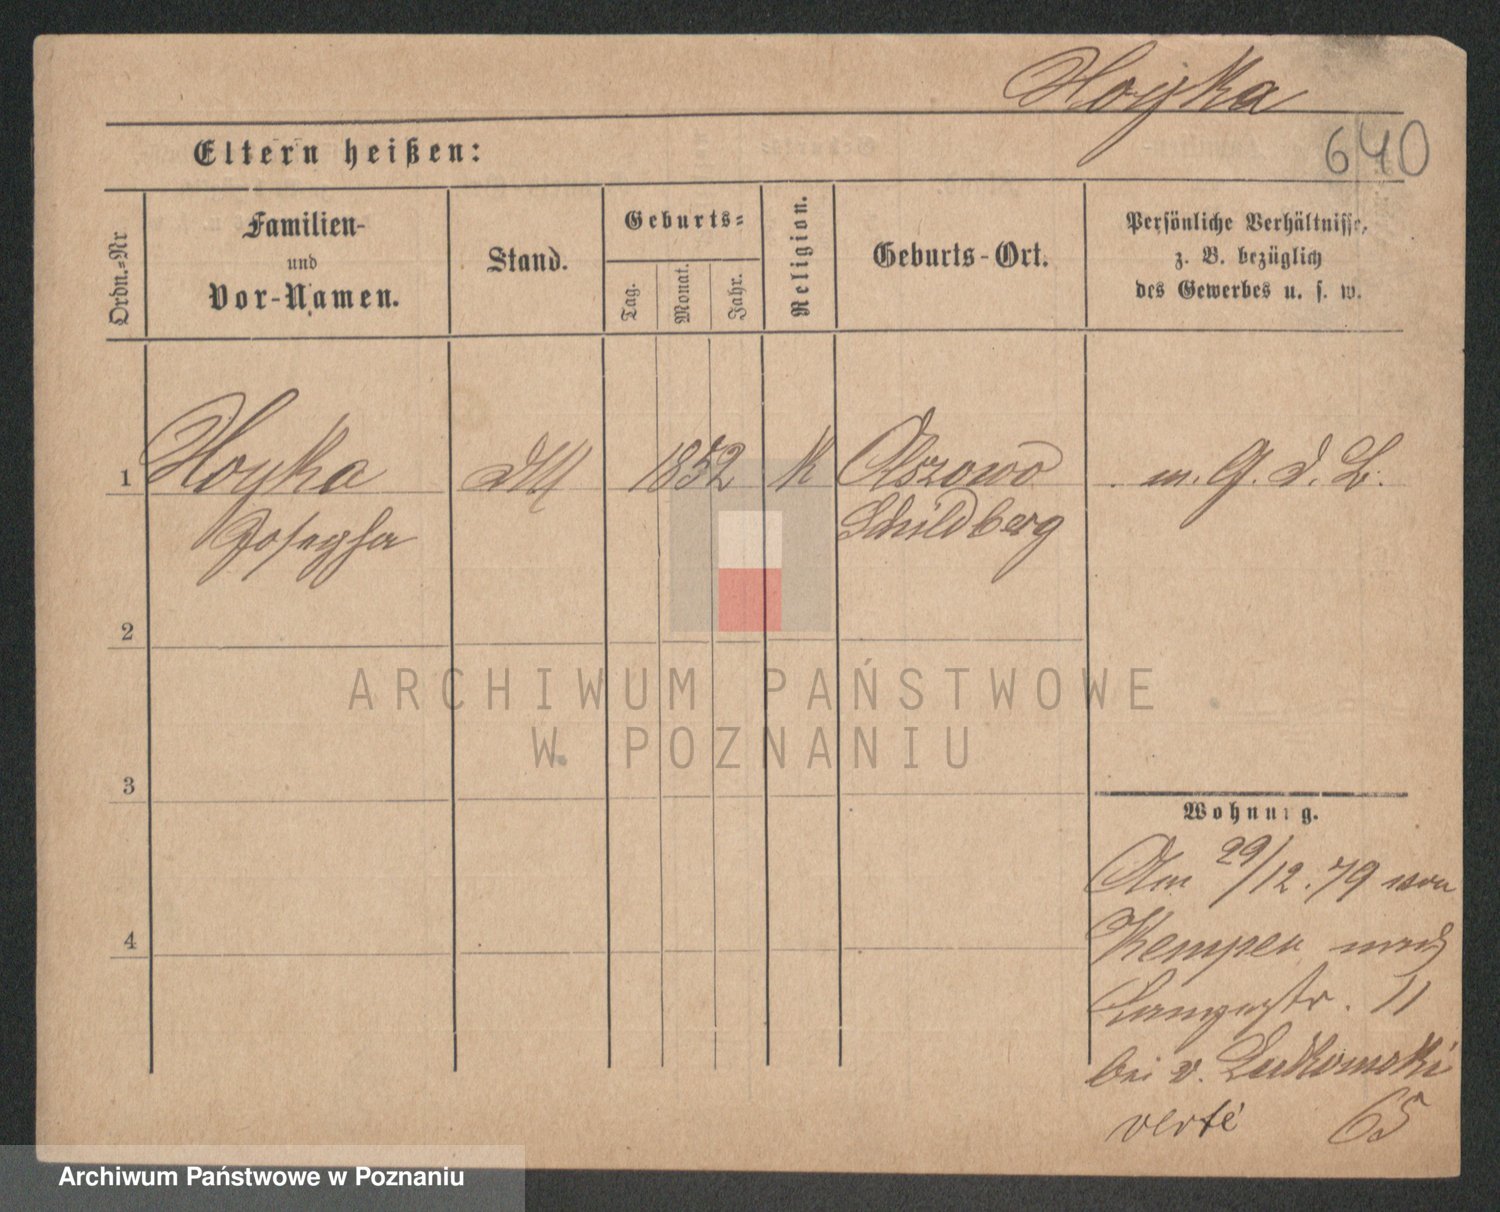 Hoyka
640
Eltern heißen:
Ordn.=Nr
Familien-
und
Vor-Namen.
Stand.
Geburts=
Tag.
Monat.
Jahr.
Religion.
Geburts-Ort.
Persönliche Verhältnisse,
z. B. bezüglich
des Gewerbes u. s. w.
1 Hoyka 1852 K Olszowo m. G. d. B.
Josepha Schildberg
2
3
Wohnung.
Am 29/12.79 von
4
Kempen nach
Langestr. 11
bei v. Lutkomski
verte 65
ARCHIWUM PAŃSTWOWE
W POZNANIU
Archiwum Państwowe w Poznaniu